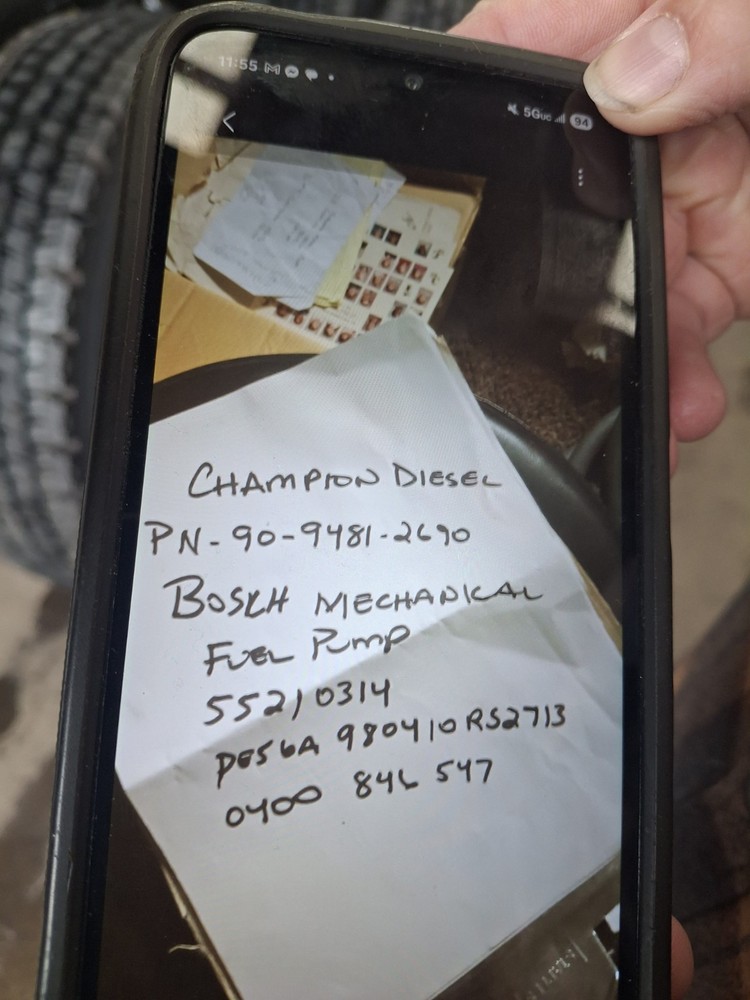 11:55
5GUC 94
CHAMPION DIESEL
PN-90-9481-2690
BOSCH MECHANICAL
FUEL PUMP
55210314
PES6A 980410RS2713
0400 846 547